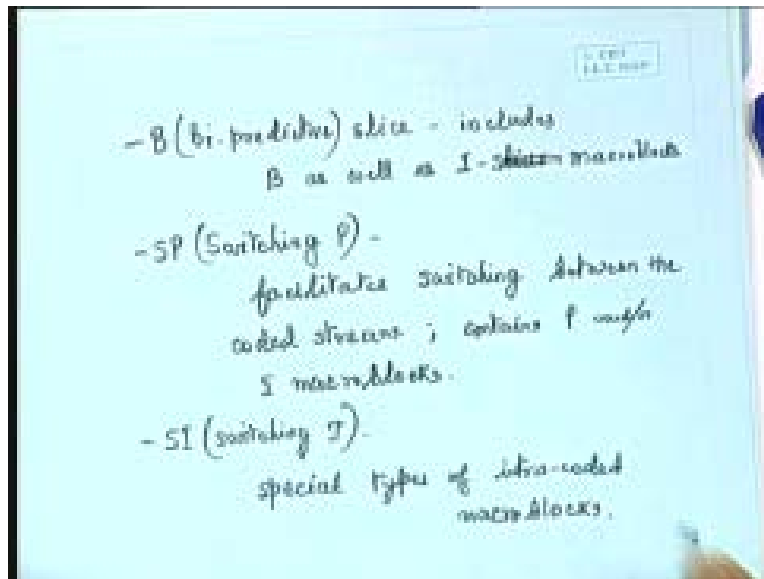 - B (Bi-predictive) slice - includes
B as well as I- macroblocks
- SP (Switching P) -
facilitates switching between the
coded streams ; contains P and/or
I macroblocks.
- SI (switching I) -
special types of intra-coded
macroblocks.